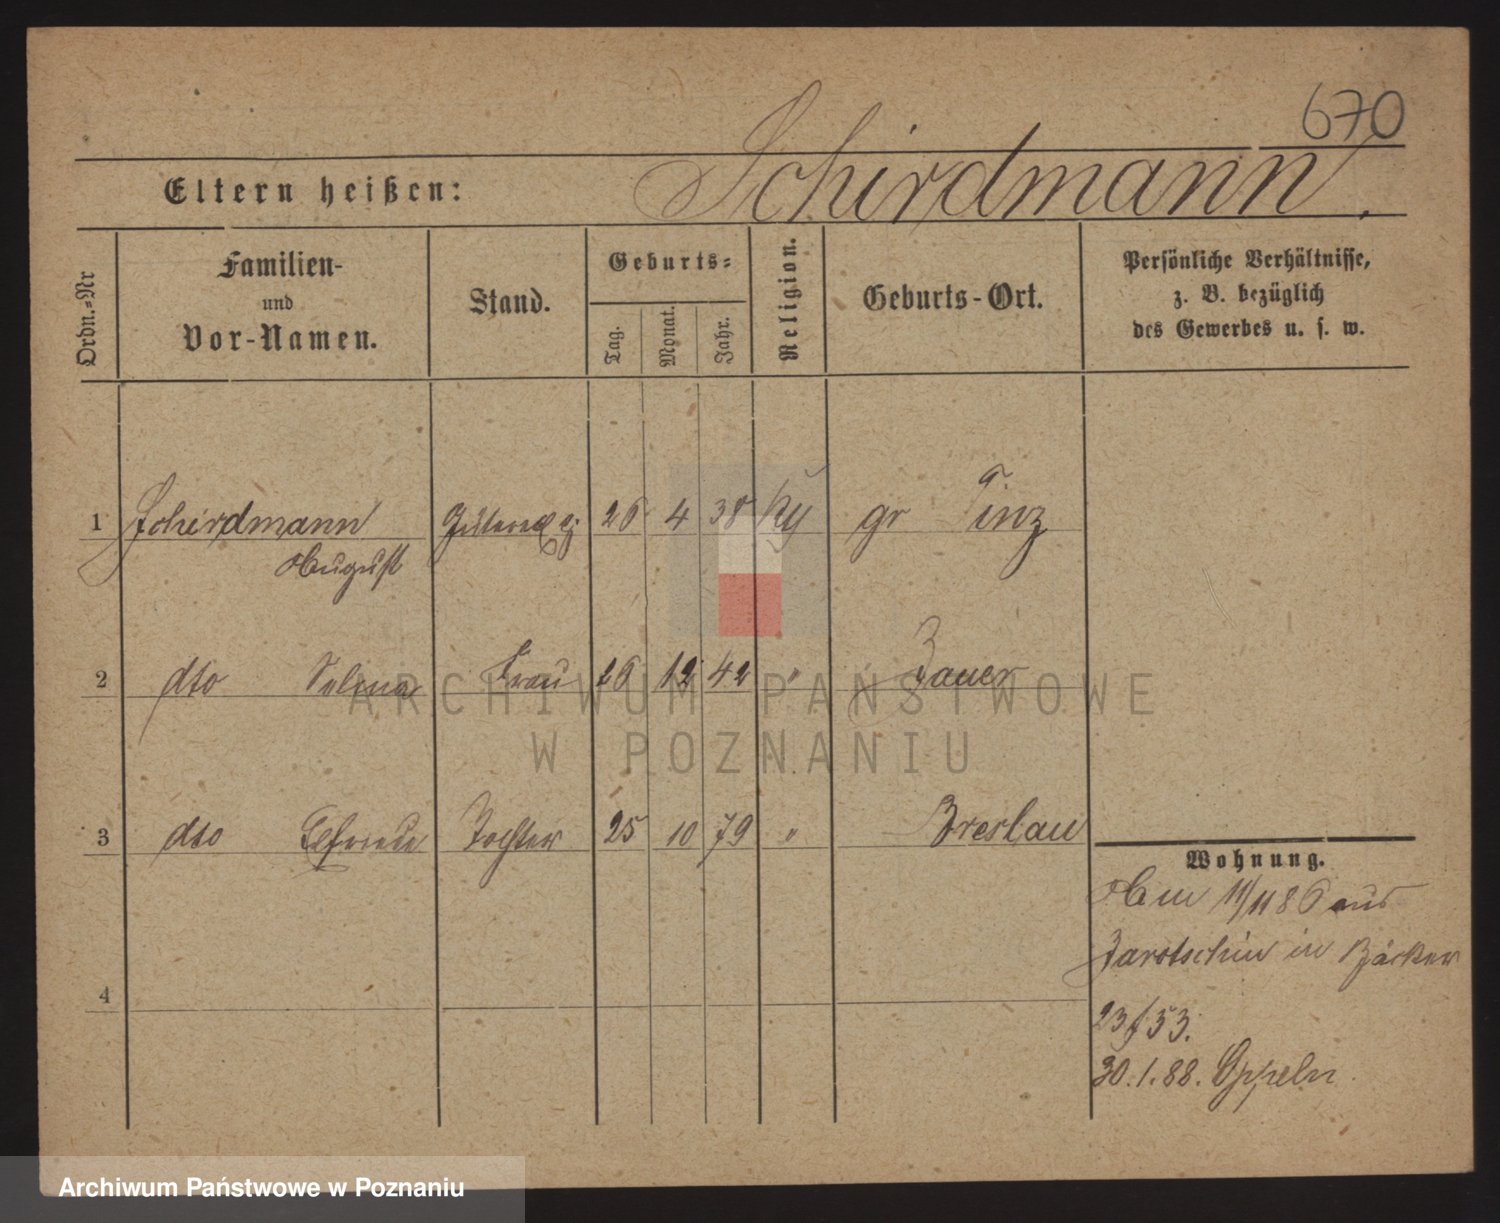 670
Eltern heißen: Schirdmann.
Ordn.-Nr
Familien-
und
Vor-Namen.
Stand.
Geburts-
Tag.
Monat.
Jahr.
Religion.
Geburts-Ort.
Persönliche Verhältnisse,
z. B. bezüglich
des Gewerbes u. s. w.
1 Schirdmann 26 4 38 gr Tinz
August
2 dto Selma Frau 26 12 42 " Jauer
3 dto Elfriede Tochter 25 10 79 " Breslau
4
Wohnung.
Am 11/11 86 aus
Jarotschin in Bäcker
23 / 53.
30.1.88. Oppeln
ARCHIWUM PAŃSTWOWE
W POZNANIU
Archiwum Państwowe w Poznaniu